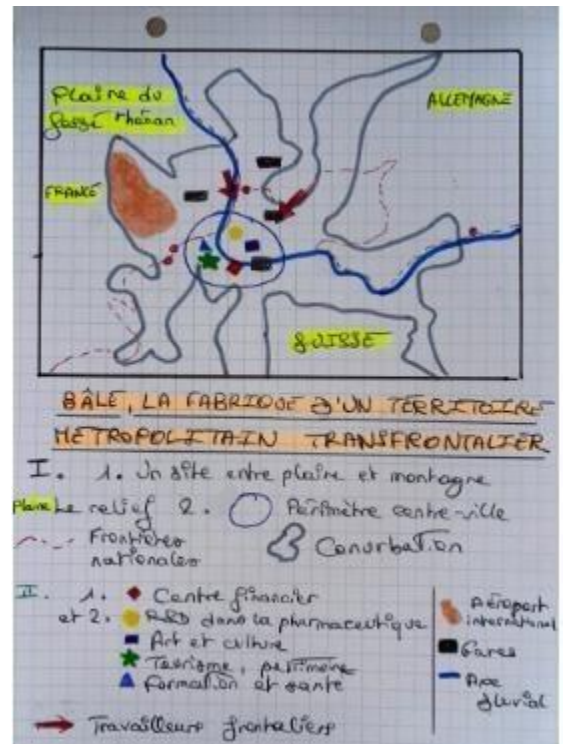 Plaine du
fossé rhénan
ALLEMAGNE
FRANCE
SUISSE
BÂLE, LA FABRIQUE D'UN TERRITOIRE
METROPOLITAIN TRANSFRONTALIER
I. 1. Un site entre plaine et montagne
Plaine Le relief 2. Périmètre centre-ville
Frontières
nationales
Conurbation
II. 1. Centre financier
et 2. R&D dans la pharmaceutique
Art et culture
Tourisme, patrimoine
Formation et santé
Travailleurs frontaliers
Aéroport
international
Gares
Axe
fluvial